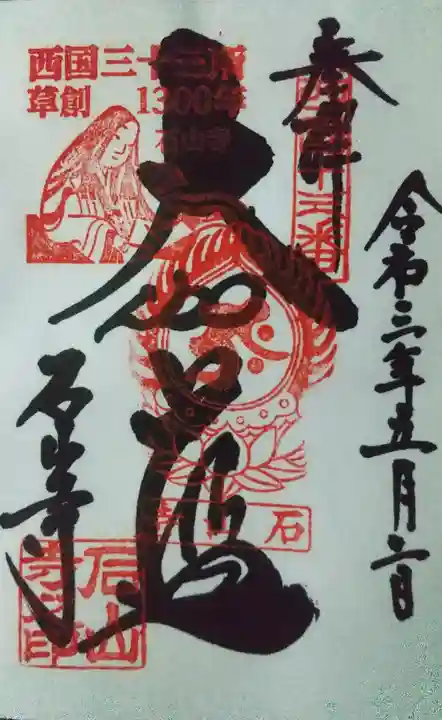 奉拝
西国十三番
令和三年五月六日
西国三十三所
草創 1300年
石山寺
大伽藍
石山寺
石山寺
石山寺印